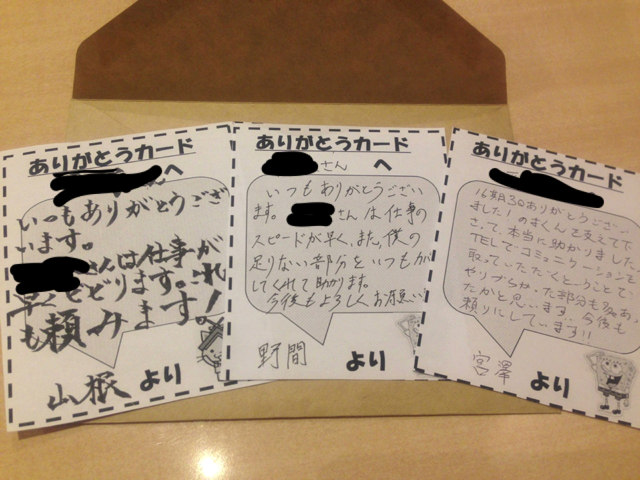 ありがとうカード
へ
いつもありがとうござ
います。
さんは仕事が
早くも
ます。これ
も頼みます!
山根 より
ありがとうカード
さん へ
いつもありがとうござい
ます。 さんは仕事の
スピードが早く、また、僕の
足りない部分をいつもカバー
してくれて助かります。
今後もよろしくお願い
野間 より
ありがとうカード
16期30ありがとうござい
ました!
くんを支えて下
さって、本当に助かりました。
TELでコミュニケーションを
取っていただくことで
やりづらかった部分も多々あっ
たかと思います。今後も
頼りにしています!!
宮澤 より